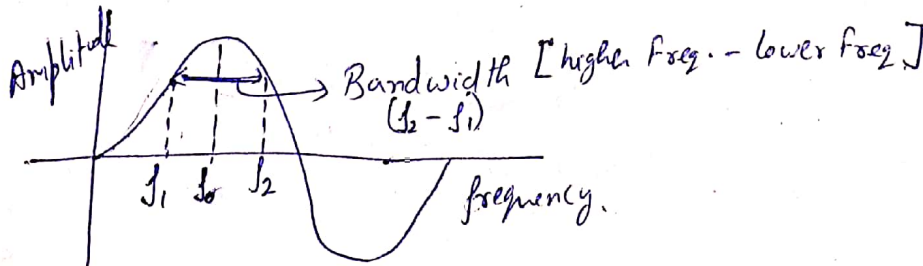 Amplitude
Bandwidth [higher Freq. - lower freq.]
(f₂ - f₁)
f₁ f₀ f₂
frequency.